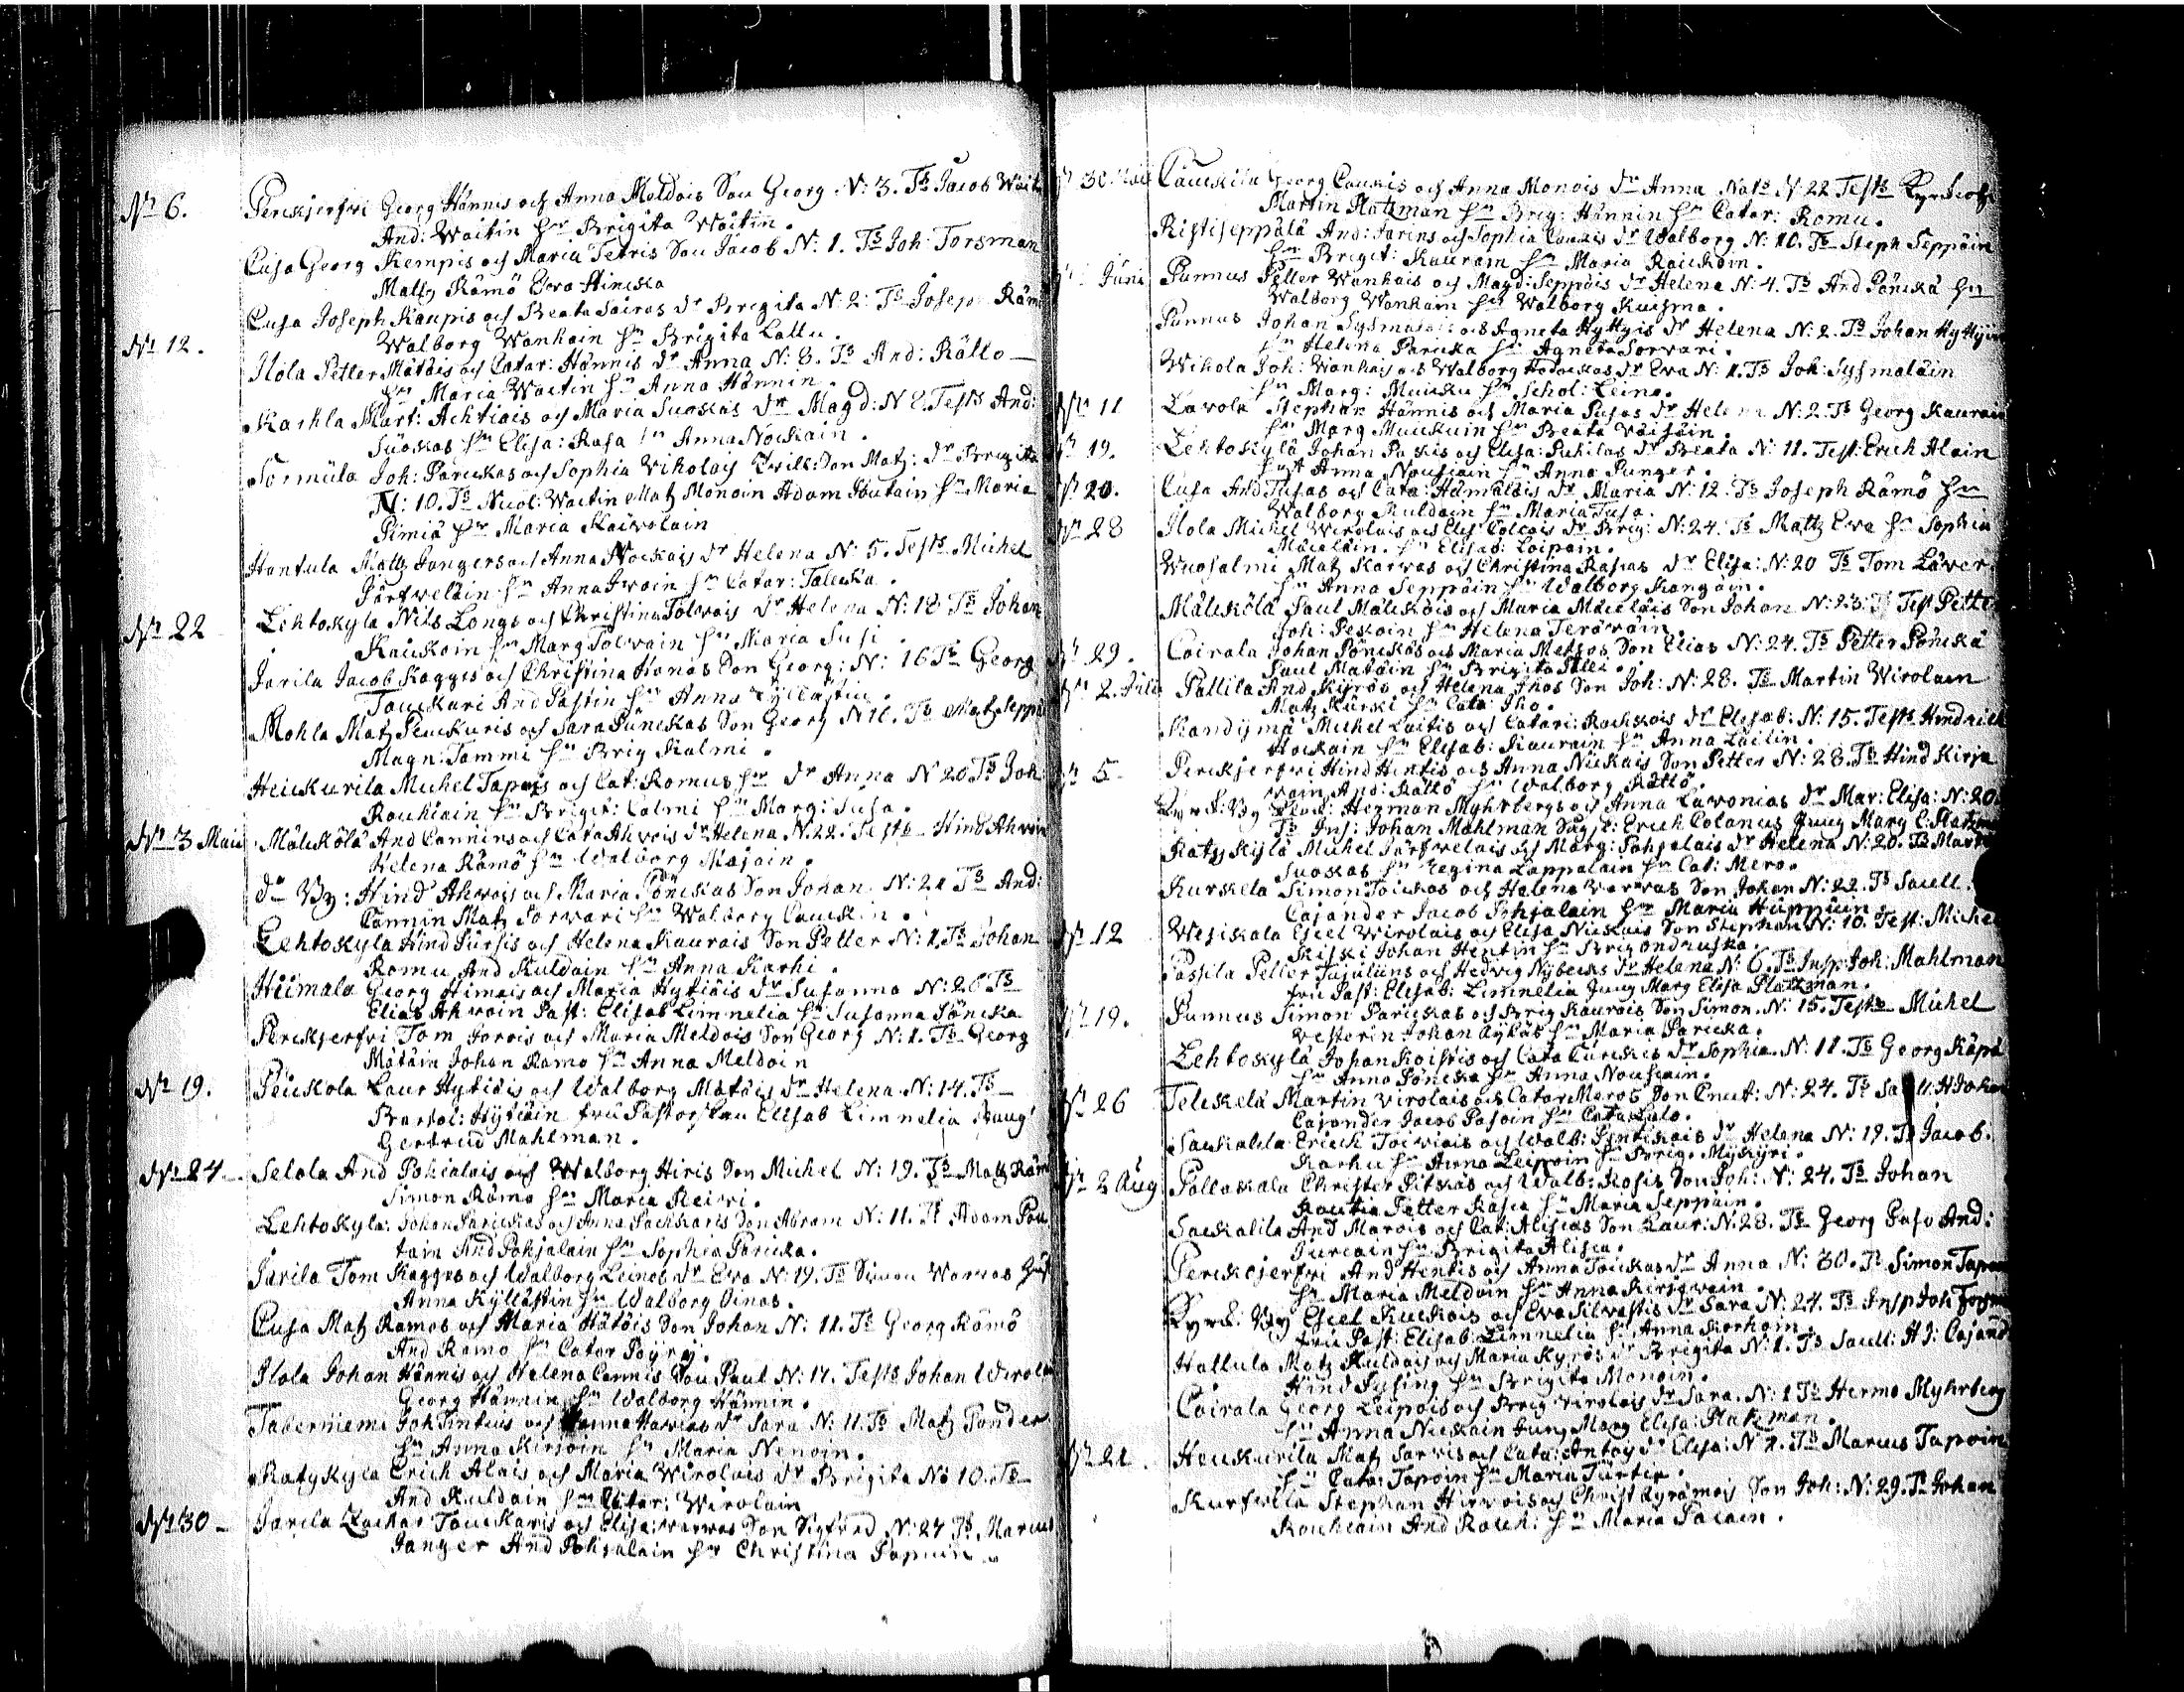 Nr 6. Perckjerfwi Georg Hännis och Anna Meldois Son Georg N: 3. Ts Jacob Wait
And: Waitin hu Brigita Waitin.
Cusa Georg Kempis och Maria Tetris Son Jacob N: 1. Ts Joh: Torsman
Mattz Rämö Ewa Hincka
Cusa Joseph Kaupis och Beata Sairas dr Brigita N: 2: Ts Joseph Räm
Walborg Wanhain hu Brigita Lattu.
Nr 12. Ilola Petter Mätäis och Catar: Hännis dr Anna N: 8. Ts And: Rällo
hu Maria Waitin hu Anna Hännin.
Karhla Mart: Achtiais och Maria Suokas dr Magd: N 8. Tests And:
Suokas hu Elisa: Rasa hu Anna Nockain.
Sormula Joh: Parickas och Sophia Wikolais Twill: Son Matz: dr Brigita
N: 10. Ts Nicol: Waitin Matz Monoin Adam Poutain hu Maria
Pimiä hu Maria Kaiwolain
Hantula Mattz Jungers och Anna Nockais dr Helena N: 5. Tests Michel
Järfweläin hu Anna Iwoin hu Catar: Talecka.
Nr 22 Lehtokylä Nils Longs och Christina Tolwais dr Helena N: 18 Ts Johan
Kauckoin hu Marg Tolwain hu Maria Susi.
Jarila Jacob Kagges och Christina Honas Son Georg: N: 16 Ts Georg
Tauckari And Pastin hu Anna Kyllästin.
Mohla Matz Peuckuris och Sara Pänckas Son Georg N 16. Ts Matz Seppä
Magn: Tammi hu Brig Kalmi.
Heickurila Michel Tapois och Cat: Romus hu dr Anna N 20 Ts Joh
Rouhiain hu Brigit: Calmi hu Marg: Susa.
Nr 3 Maii Mälckölä And Cannins och Cata Ahwois dr Helena N. 22. Tests Hind Ahwoin
Helena Rämö hu Walborg Majoin.
dn By: Hind Ahwois och Maria Pönckas Son Johan N: 21 Ts And:
Cannin Matz Sorwari hu Walborg Cauckin.
Lehtokyla Hind Pursis och Helena Kaurais Son Petter N: 1. Ts Johan
Romu And Kuldain hu Anna Karhi.
Heimala Georg Himais och Maria Hytiäis dr Susanna N: 26 Ts
Elias Ahwoin Past: Elisab Limnelia hu Susanna Pöncka
Perckjerfwi Tom Jorois och Maria Meldois Son Georg N: 1. Ts Georg
Mätäin Johan Rämö hu Anna Meldoin
Nr 19. Peickola Laur Hytiäis och Walborg Mätäis dr Helena N: 14. Ts
Barthol: Hytiäin fru Pastorskan Elisab Limnelia Jungf
Gertrud Mahlman.
Nr 24 Selola And Pohialais och Walborg Hiris Son Michel N: 19. Ts Matz Räm
Simon Rämö hu Maria Reiwi.
Lehtokyla: Johan Parickas och Anna Pachkaris Son Abram N: 11. Ts Adam Pou
tain And Pohjalain hu Sophia Paricka.
Jarila Tom Kagges och Walborg Leinos dr Ewa N: 19. Ts Simon Warwas hust
Anna Kyllästin hu Walborg Oinas.
Cusa Matz Rämös och Maria Hätöis Son Johan N: 11. Ts Georg Rämö
And Rämö hu Catar Pöyry.
Ilola Johan Hännis och Helena Cannis Son Paul N: 17. Tests Johan Wirola
Georg Hännin hu Walborg Hännin.
Taberniemi Joh Pintius och Hanna Harwas dr Sara N: 11. Ts Matz Ponder
hu Anna Kirjoin hu Maria Nenoin.
Ratykyla Erich Alais och Maria Wirolais dr Brigita N: 10. Ts
And Kuldain hu Catar: Wirolain
Nr 30 Jarila Zachar Tauckaris och Elisa: Warwas Son Sigfred N: 27 Ts Marcus
Junger And Pohjalain hu Christina Papuin.
Nr 30 Maii Cauckila Georg Cauxis och Anna Monois dr Anna Nats N 22 Tests Kyrckioh
Martin Platzman hu Brig: Hännin hu Catar: Romu.
Ristiseppälä And: Jarens och Sophia Cauxis dr Walborg N: 10. Ts Steph Seppöin
hu Brigit: Kaurain hu Maria Raickoin.
Juni Punnus Petter Wanhais och Magd: Seppöis dr Helena N: 4. Ts And Pönckä hu
Walborg Wanhain hu Walborg Kuisma.
Punnus Johan Sysmäläis och Agneta Hyttyis dr Helena N: 2. Ts Johan Hyttyin
hu Helena Paricka hu Agneta Sorwari.
Wikola Joh: Wanhais och Walborg Hodockas dr Ewa N: 11. Ts Joh: Sysmäläin
hu Marg: Muucku hu Schol: Leino.
Nr 11 Lavola Stephan Hännis och Maria Pusas dr Helena N: 2. Ts Georg Kaurain
hu Marg Muuckuin hu Beata Wäisäin.
Nr 19. Lehtokylä Johan Pu kis och Elisa: Puhilas dr Beata N: 11. Test: Erich Alain
hust Anna Nousiain hu Anna Punger.
Nr 20. Cusa And Susas och Cata: Hämäläis dr Maria N: 12. Ts Joseph Rämö hu
Walborg Kuldain hu Maria Susa.
Nr 28 Ilola Michel Wirolais och Elis Colcois dr Brig: N: 24. Ts Mattz Ewa hu Sophia
Mäceläin. hu Elisab: Loipoin.
Wuosalmi Matz Karwas och Christina Rasias dr Elisa: N: 20 Ts Tom Läwer
hu Anna Seppöin hu Walborg Kangoin.
Mälckölä Paul Mälcköis och Maria Mäceläis Son Johan N: 23. Ts Test Petter
Joh: Peskoin hu Helena Teröwäin.
Nr 29. Coirala Johan Pönckös och Maria Metsos Son Elias N: 24. Ts Petter Pönckä
Paul Mätäin hu Brigita Illei.
Nr 2. Julii Pällilä And Kyrös och Helena Ihos Son Joh: N: 28. Ts Martin Wirolain
Matz Kurski hu Cata: Iho.
Kandymä Michel Laitis och Catari: Rachkois dr Elisab: N: 15. Tests Hindrich
Nockain hu Elisab: Kaurain hu Anna Laitin.
Nr 5 Perckjerfwi Hind Hentis och Anna Nickais Son Petter N: 28. Ts Hind Kirja
wain And: Rättö hu Walborg Rättö.
Kyrck: By Klock: Herman Myhrbergs och Anna Lavonias dr Mar: Elisa: N: 20.
Ts Ins: Johan Mahlman Sergt: Erich Colanus Jung Marg E: Platzm
Ratzkylä Michel Järfwelais och Marg: Pohjalais dr Helena N: 20. Ts Mart
Suokas hu Regina Lappalain hu Cat: Mero.
Kurskela Simon Toickas och Helena Warwas Son Johan N: 22. Ts Sacell.
Cajander Jacob Pohjalain hu Maria Huppuin.
Nr 12 Wesikala Eskel Wirolais och Elisa Nickais Son Stephan N: 10. Test: Michel
Kiiski Johan Hentin hu Brig Ondruska.
Passila Petter Jajuliins och Hedvig Nybecks dr Helena N: 6. Ts Insp: Joh: Mahlman
fru Past: Elisab: Limnelia Jung Marg Elisa Platzman.
Nr 19. Punnus Simon Parickas och Brig Kaurais Son Simon N: 15. Tests Michel
Westerin Johan Äykäs hu Maria Paricka.
Lehtokylä Johan Koistis och Cata Turckis dr Sophia N: 11. Ts Georg Käpä
hu Anna Pöncka hu Anna Nousiain.
Nr 26 Telckelä Martin Wirolais och Catar Meros Son Cnut: N: 24. Ts Sacell: H Johan
Cajander Jacob Pasoin hu Cata Lalo.
Sackalila Erich Toiwiais och Walb: Pyntickais dr Helena N: 19. Ts Jacob.
Karhu hu Anna Leipoin hu Brig: Mykyri.
Nr 2 Aug Pällakala Christer Pitkäs och Walb: Rosis Son Joh: N: 24. Ts Johan
Rautia Petter Rasia hu Maria Seppöin.
Sackalila And Marois och Cat: Alisias Son Laur: N: 28. Ts Georg Puso And:
Jurcain hu Brigita Alisia.
Perckjerfwi And Hentis och Anna Toickas dr Anna N: 30. Ts Simon Tapan
hu Maria Meldoin hu Anna Kirjawain.
Kyrck: By Eskel Kuckois och Ewa Silwastis dr Sara N: 24. Ts Insp Joh Torsm
fru Past: Elisab: Limnelia hu Anna Korhoin.
Hattula Matz Kuldais och Maria Kyrös dr Brigita N: 1. Ts Sacell: H J: Cajand
Hind Sysing hu Brigita Monoin.
Coirala Georg Leipois och Brig Wirolais dr Sara. N: 1 Ts Herma Myhrberg
hu Anna Nickain Jung Marg Elisa: Platzman.
Nr 21. Heickurila Matz Sarwis och Cata: Antoys dr Elisa: N 2. Ts Marcus Tapoin
hu Cata: Tapoin hu Maria Turtia.
Kurfwila Stephan Hirwois och Christ Kyrömois Son Joh: N: 29. Ts Johan
Rouhiain And Rouh: hu Maria Pacain.